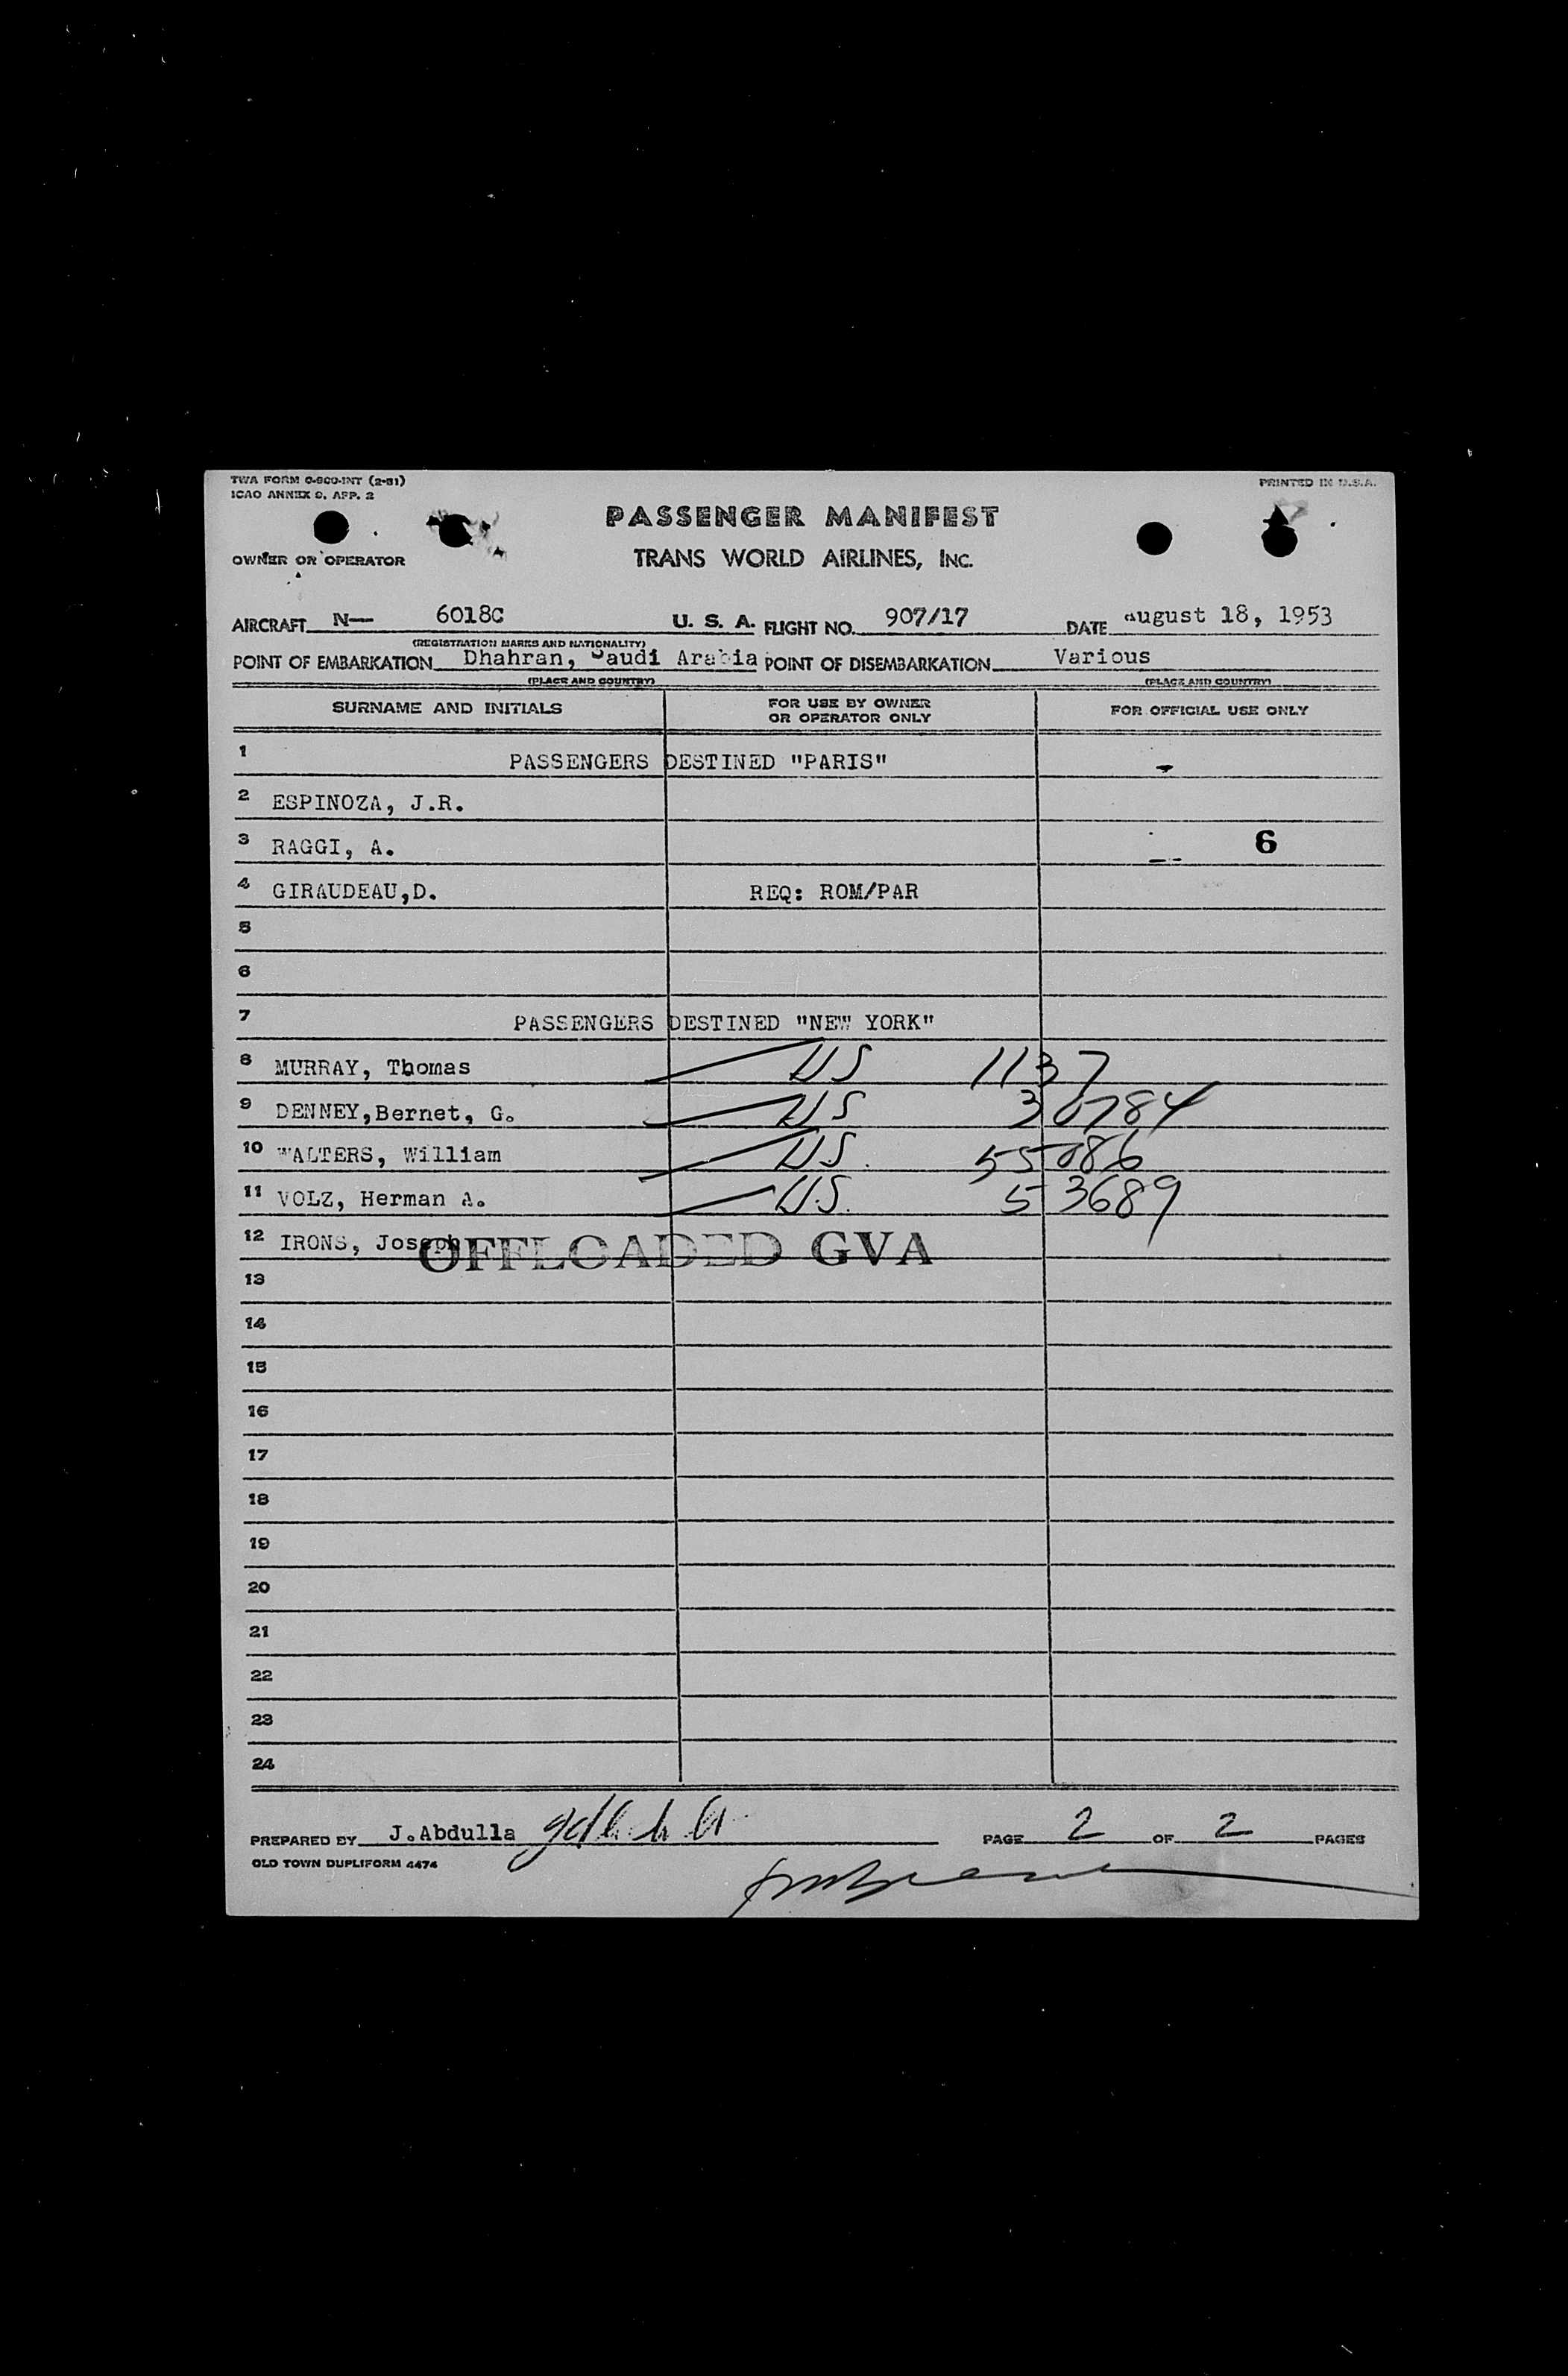 TWA FORM O-800-INT (2-51)
ICAO ANNEX 9, APP. 2
PRINTED IN U.S.A.
PASSENGER MANIFEST
OWNER OR OPERATOR
TRANS WORLD AIRLINES, INC.
AIRCRAFT N— 6018C U. S. A. FLIGHT NO. 907/17 DATE August 18, 1953
(REGISTRATION MARKS AND NATIONALITY)
POINT OF EMBARKATION Dhahran, Saudi Arabia POINT OF DISEMBARKATION Various
(PLACE AND COUNTRY) (PLACE AND COUNTRY)
SURNAME AND INITIALS FOR USE BY OWNER OR OPERATOR ONLY FOR OFFICIAL USE ONLY
1 PASSENGERS DESTINED "PARIS"
2 ESPINOZA, J.R.
3 RAGGI, A. 6
4 GIRAUDEAU,D. REQ: ROM/PAR
5
6
7 PASSENGERS DESTINED "NEW YORK"
8 MURRAY, Thomas US 1137
9 DENNEY,Bernet, G. US 30784
10 WALTERS, William U.S. 55086
11 VOLZ, Herman A. U.S. 53689
12 IRONS, Joseph OFFLOADED GVA
13
14
15
16
17
18
19
20
21
22
23
24
PREPARED BY J.Abdulla PAGE 2 OF 2 PAGES
OLD TOWN DUPLIFORM 4474